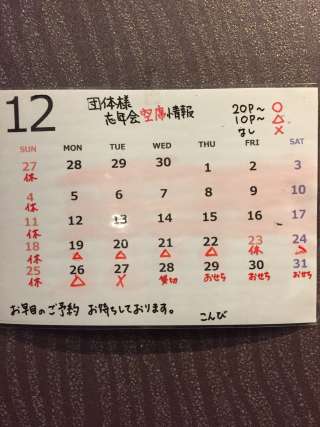 12
団体様
忘年会空席情報
20P〜 ○
10P〜 △
なし ×
SUN MON TUE WED THU FRI SAT
27 28 29 30 1 2 3
休
4 5 6 7 8 9 10
休
11 12 13 14 15 16 17
休
18 19 20 21 22 23 24
休 △ △ △ △ 休 △
25 26 27 28 29 30 31
休 △ × 貸切 おせち おせち おせち
お早目のご予約 お待ちしております。 こんぴ